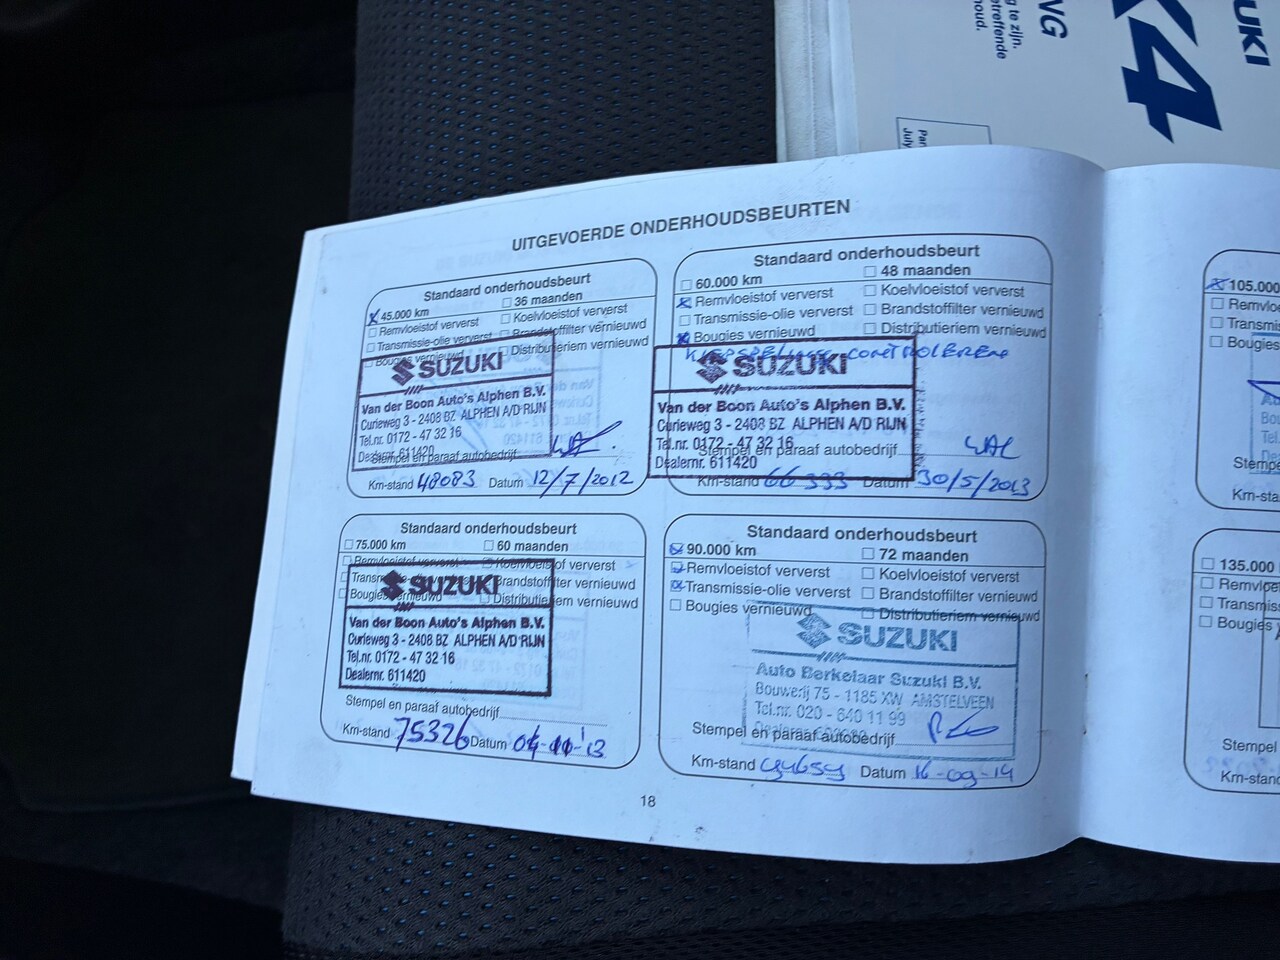 UZUKI
X4
NG
g te zijn.
treffende
houd.
Par
July
UITGEVOERDE ONDERHOUDSBEURTEN
Standaard onderhoudsbeurt
45.000 km
36 maanden
Remvloeistof ververst
Koelvloeistof ververst
Transmissie-olie ververst
Brandstoffilter vernieuwd
Bougies vernieuwd
Distributieriem vernieuwd
SUZUKI
Van der Boon Auto's Alphen B.V.
Curieweg 3 - 2408 BZ ALPHEN A/D RIJN
Tel.nr. 0172 - 47 32 16
Dealernr. 611420
Stempel en paraaf autobedrijf
Km-stand 48083 Datum 12/7/2012
Standaard onderhoudsbeurt
60.000 km
48 maanden
Remvloeistof ververst
Koelvloeistof ververst
Transmissie-olie ververst
Brandstoffilter vernieuwd
Bougies vernieuwd
Distributieriem vernieuwd
KLEPSPELING CONTROLEREN
SUZUKI
Van der Boon Auto's Alphen B.V.
Curieweg 3 - 2408 BZ ALPHEN A/D RIJN
Tel.nr. 0172 - 47 32 16
Stempel en paraaf autobedrijf
Dealernr. 611420
Km-stand 66333 Datum 30/5/2013
Standaard onderhoudsbeurt
75.000 km
60 maanden
Remvloeistof ververst
Koelvloeistof ververst
Brandstoffilter vernieuwd
Bougies vernieuwd
Distributieriem vernieuwd
SUZUKI
Van der Boon Auto's Alphen B.V.
Curieweg 3 - 2408 BZ ALPHEN A/D RIJN
Tel.nr. 0172 - 47 32 16
Dealernr. 611420
Stempel en paraaf autobedrijf
Km-stand 75326 Datum
Standaard onderhoudsbeurt
90.000 km
72 maanden
Remvloeistof ververst
Koelvloeistof ververst
Transmissie-olie ververst
Brandstoffilter vernieuwd
Bougies vernieuwd
Distributieriem vernieuwd
SUZUKI
Auto Berkelaar Suzuki B.V.
Bouwerij 75 - 1185 XW AMSTELVEEN
Tel.nr. 020 - 640 11 99
Stempel en paraaf autobedrijf
Km-stand Datum 16-09-14
18
105.000
Remvlo
Transmi
Bougies
Stempe
Km-sta
135.000
Remvloe
Transmis
Bougies
Stempel
Km-stan